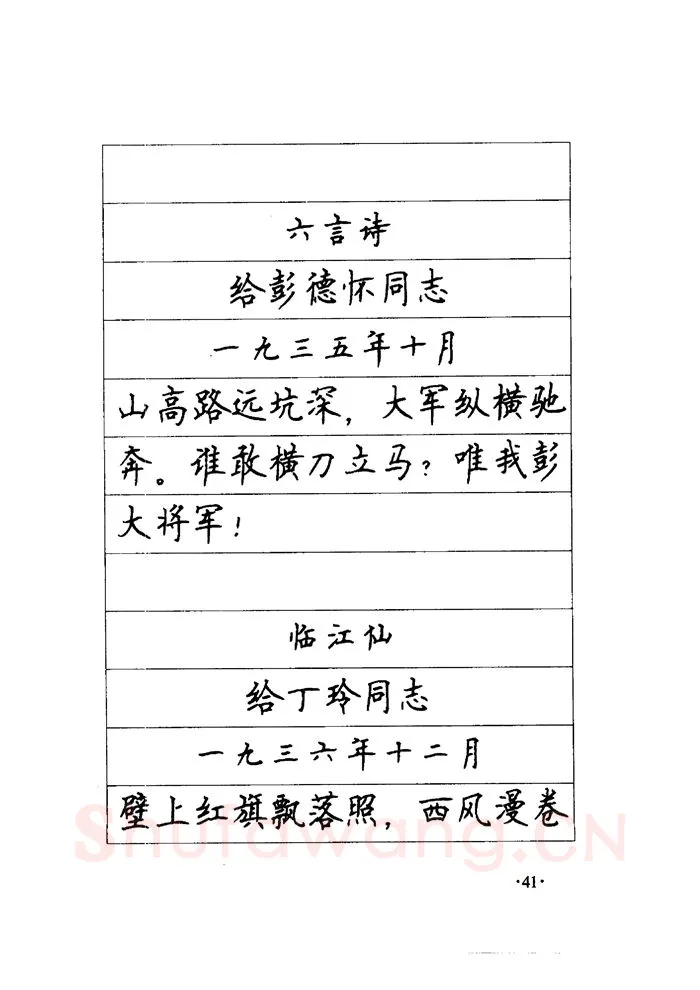 六言诗
给彭德怀同志
一九三五年十月
山高路远坑深，大军纵横驰
奔。谁敢横刀立马？唯我彭
大将军！
临江仙
给丁玲同志
一九三六年十二月
壁上红旗飘落照，西风漫卷
Shufawang.CN
·41·